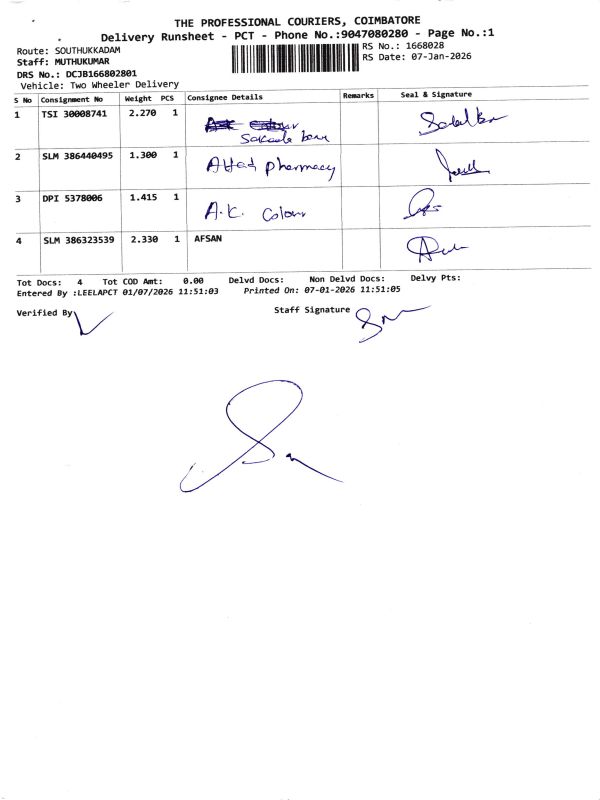 THE PROFESSIONAL COURIERS, COIMBATORE
Delivery Runsheet - PCT - Phone No.:9047080280 - Page No.:1
Route: SOUTHUKKADAM
RS No.: 1668028
Staff: MUTHUKUMAR
RS Date: 07-Jan-2026
DRS No.: DCJB166802801
Vehicle: Two Wheeler Delivery
S No Consignment No Weight PCS Consignee Details Remarks Seal & Signature
1 TSI 30008741 2.270 1
2 SLM 386440495 1.300 1 pharmacy
3 DPI 5378006 1.415 1 A.K. Colour
4 SLM 386323539 2.330 1 AFSAN
Tot Docs: 4 Tot COD Amt: 0.00 Delvd Docs: Non Delvd Docs: Delvy Pts:
Entered By :LEELAPCT 01/07/2026 11:51:03 Printed On: 07-01-2026 11:51:05
Verified By
Staff Signature